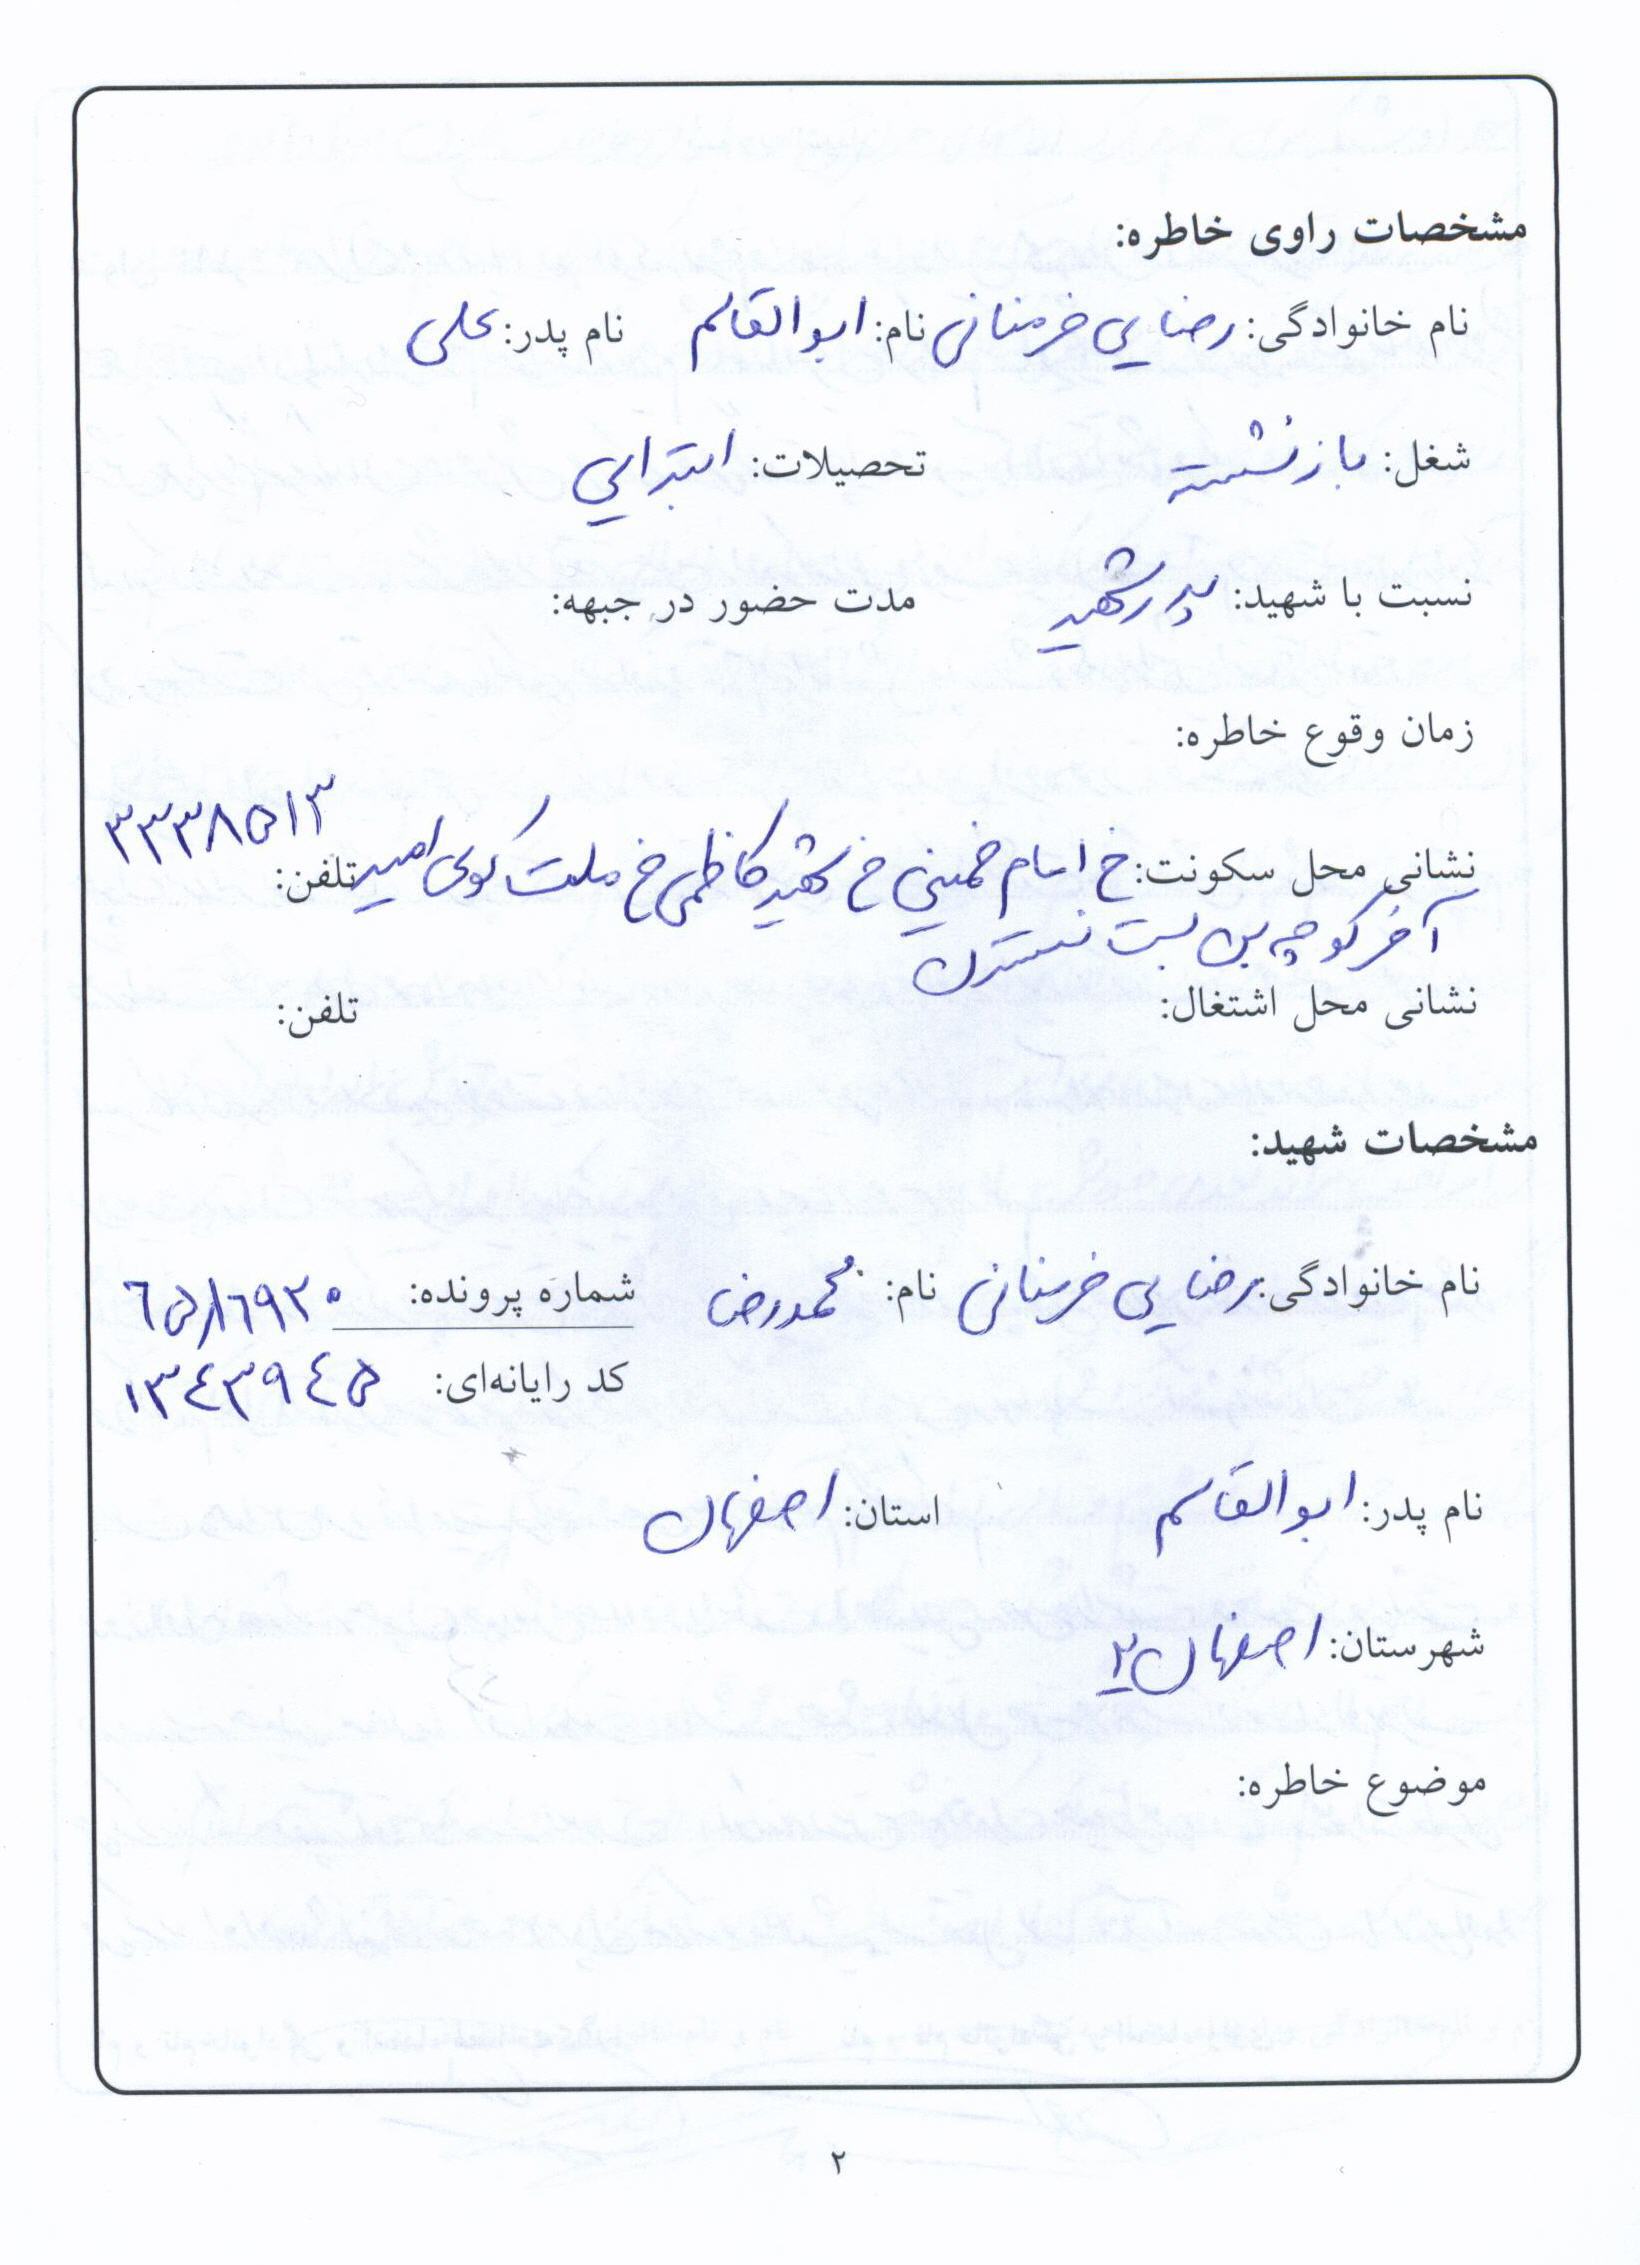 مشخصات راوی خاطره:
نام خانوادگی: رضایی خرمنانی نام: ابوالقاسم نام پدر: علی
شغل: بازنشسته تحصیلات: ابتدایی
نسبت با شهید: پدر شهید مدت حضور در جبهه:
زمان وقوع خاطره:
نشانی محل سکونت: خ امام خمینی خ شهید کاظمی خ ملت کوی امید تلفن: ۳۳۳۸۵۱۳
آخر کوچه بن بست نسترن
نشانی محل اشتغال: تلفن:
مشخصات شهید:
نام خانوادگی: رضایی خرمنانی نام: محمدرضا شماره پرونده: ۶۵/۱۶۹۳۰
کد رایانه‌ای: ۱۳۴۳۹۴۵
نام پدر: ابوالقاسم استان: اصفهان
شهرستان: اصفهان ۲
موضوع خاطره:
۲